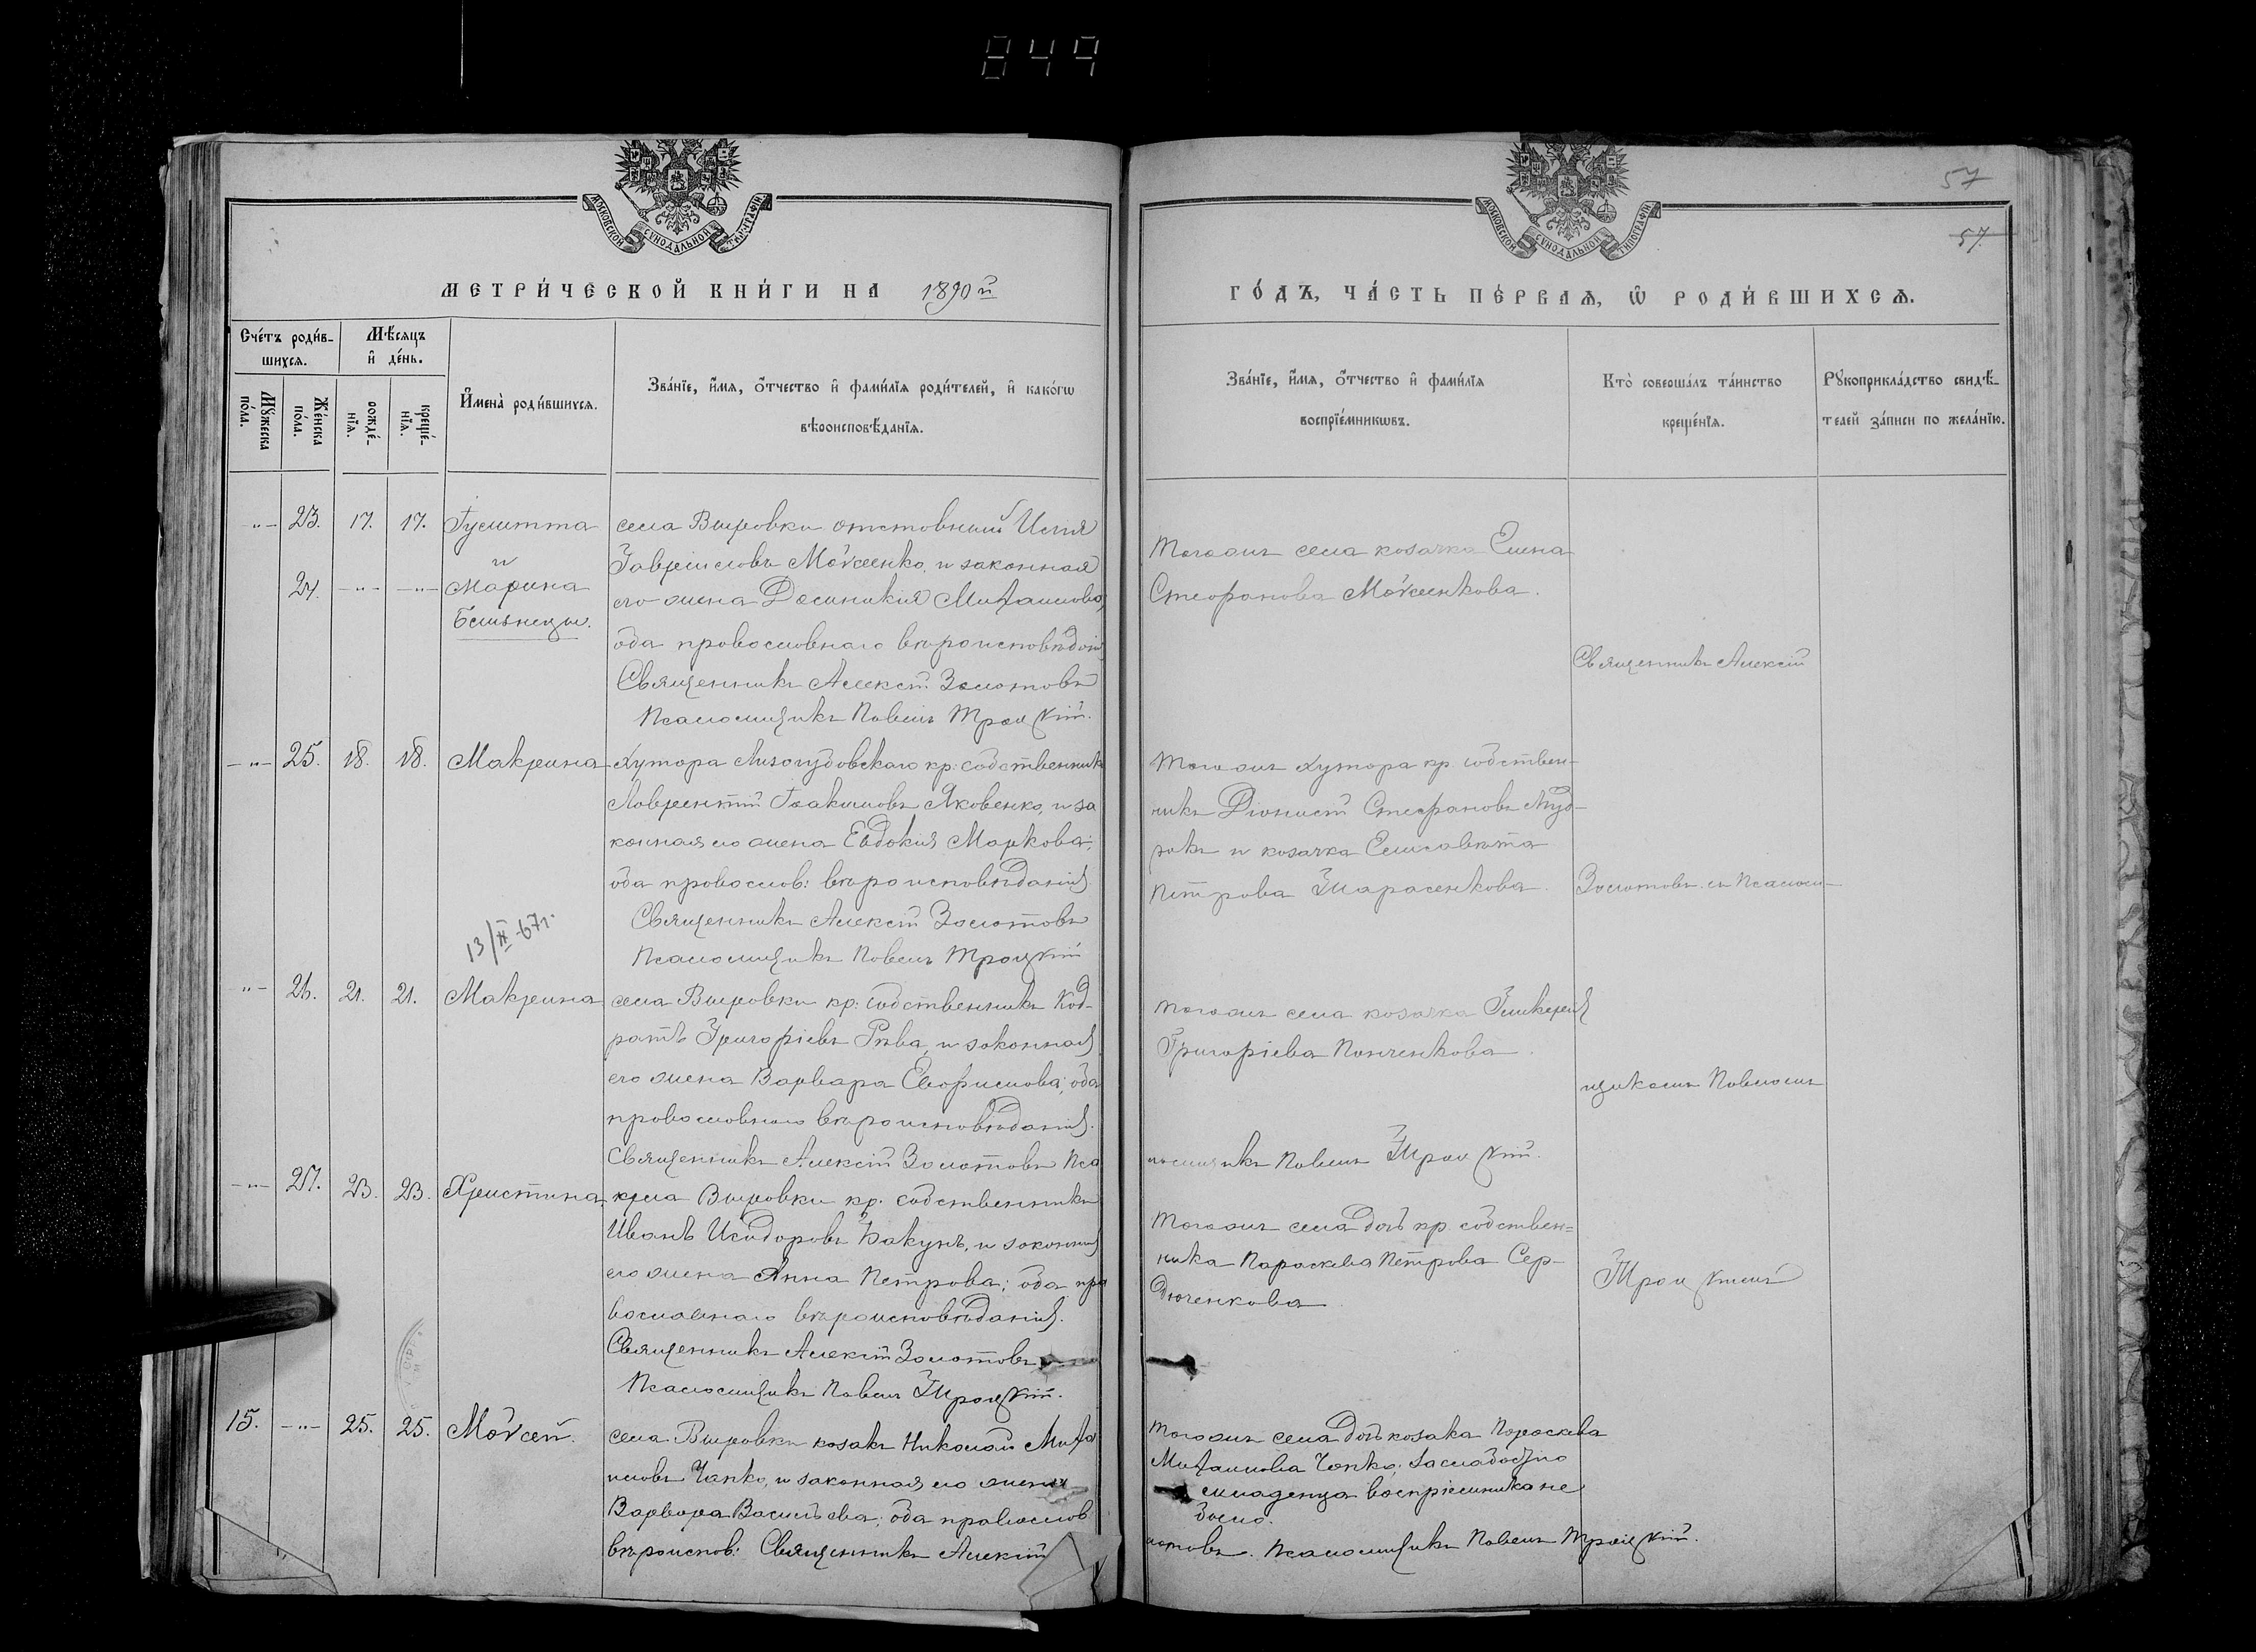 849
57
57
МОСКОВСКОЙ СУНОДАЛЬНОЙ ТИПОГРАФІИ
МОСКОВСКОЙ СУНОДАЛЬНОЙ ТИПОГРАФІИ
МЕТРИ́ЧЕСКОЙ КНИ́ГИ НА 1890й
ГО́ДЪ, ЧА́СТЬ ПЕ́РВАѦ, Ѡ РОДИ́ВШИХСѦ.
Сче́тъ роди́в-
шихсѧ.
Мѣ́сяцъ
и де́нь.
Му́жеска по́ла.
Же́нска по́ла.
рожде́-нїѧ.
креще́-нїѧ.
Имена̀ роди́вшихсѧ.
Зва́нїе, и́мѧ, о́тчество и фами́лїѧ роди́телей, и како́гѡ
вѣроисповѣ́данїѧ.
Зва́нїе, и́мѧ, о́тчество и фами́лїѧ
воспрїе́мникѡвъ.
Кто̀ соверша́лъ та́инство
креще́нїѧ.
Рꙋкоприкла́дство свидѣ́-
телей за́писи по жела́нїю.
-"- 23. 17. 17. Іулитта
и
24. -"- -"- Марина
близнецы.
села Вировки отставный Илія
Гавриловъ Моѵсеенко, и законная
его жена Домникія Михаилова,
оба православнаго вѣроисповѣданія
Священникъ Алексій Золотовъ
Псаломщикъ Павелъ Троицкій.
Тогожъ села козачка Елена
Стефанова Моѵсеенкова.
Священникъ Алексій
-"- 25. 18. 18. Макрина
Хутора Лизогубовскаго кр: собственникъ
Лаврентій Іоакимовъ Яковенко, и за
конная его жена Евдокія Маркова;
оба правослов: вѣроисповѣданія
Священникъ Алексій Золотовъ
Псаломщикъ Павелъ Троицкій
Тогожъ хутора кр. собствен-
никъ Діонисій Стефановъ
и козачка Елисавета
Петрова Тарасенкова.
Золотовъ съ Псалом-
"- 26. 21. 21. Макрина
села Вировки кр: собственникъ Код-
ратъ Григоріевъ Рѣва, и законная
его жена Варвара Евфимова; оба
православнаго вѣроисповѣданія.
Священникъ Алексій Золотовъ Пса
ломщикъ Павелъ Троицкій.
Тогожъ села козачка Гликерія
Григоріева Панченкова.
щикомъ Павломъ
-"- 27. 23. 23. Христина
села Вировки кр. собственникъ
Иванъ Исидоровъ Бакунъ, и законная
его жена Анна Петрова; оба пра
вославнаго вѣроисповѣданія.
Священникъ Алексій Золотовъ
Псаломщикъ Павелъ Троицкій.
Тогожъ села дочь кр. собствен=
ника Параскева Петрова Сер-
дюченкова
Троицкимъ
15. -"- 25. 25. Моѵсей.
села Вировки козакъ Николай Миха
иловъ Чапко, и законная его жена
Варвара Васильева; оба правослов
вѣроиспов: Священникъ Алексій
Тогожъ села дочь козака Параскева
Михаилова Чапко; за слабостію
младенца воспріемника не
было.
лотовъ. Псаломщикъ Павелъ Троицкій.